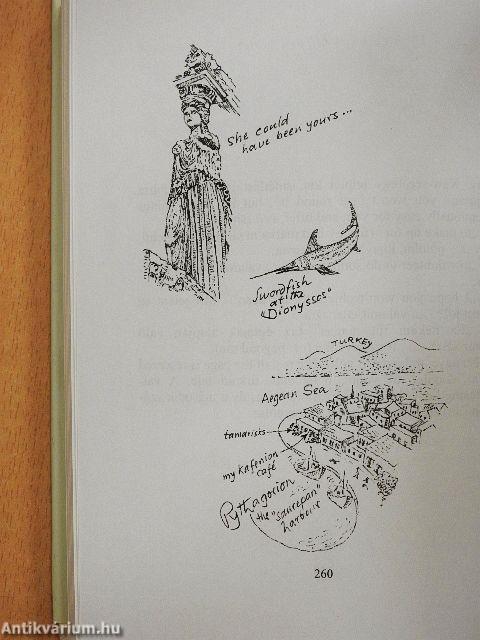 she could
have been yours...
Swordfish
at the
"Dionysses"
TURKEY
Aegean Sea
tamarisks
my Kafenion
café
Pythagorion
the "saucepan"
harbour
260
Antikvárium.hu